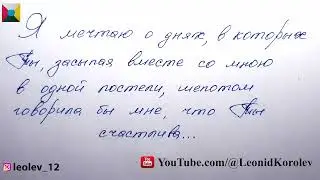 Я мечтаю о днях, в которых
Ты, засыпая вместе со мною
в одной постели, шепотом
говорила бы мне, что Ты
счастлива...
leolev_12
YouTube.com/@LeonidKorolev